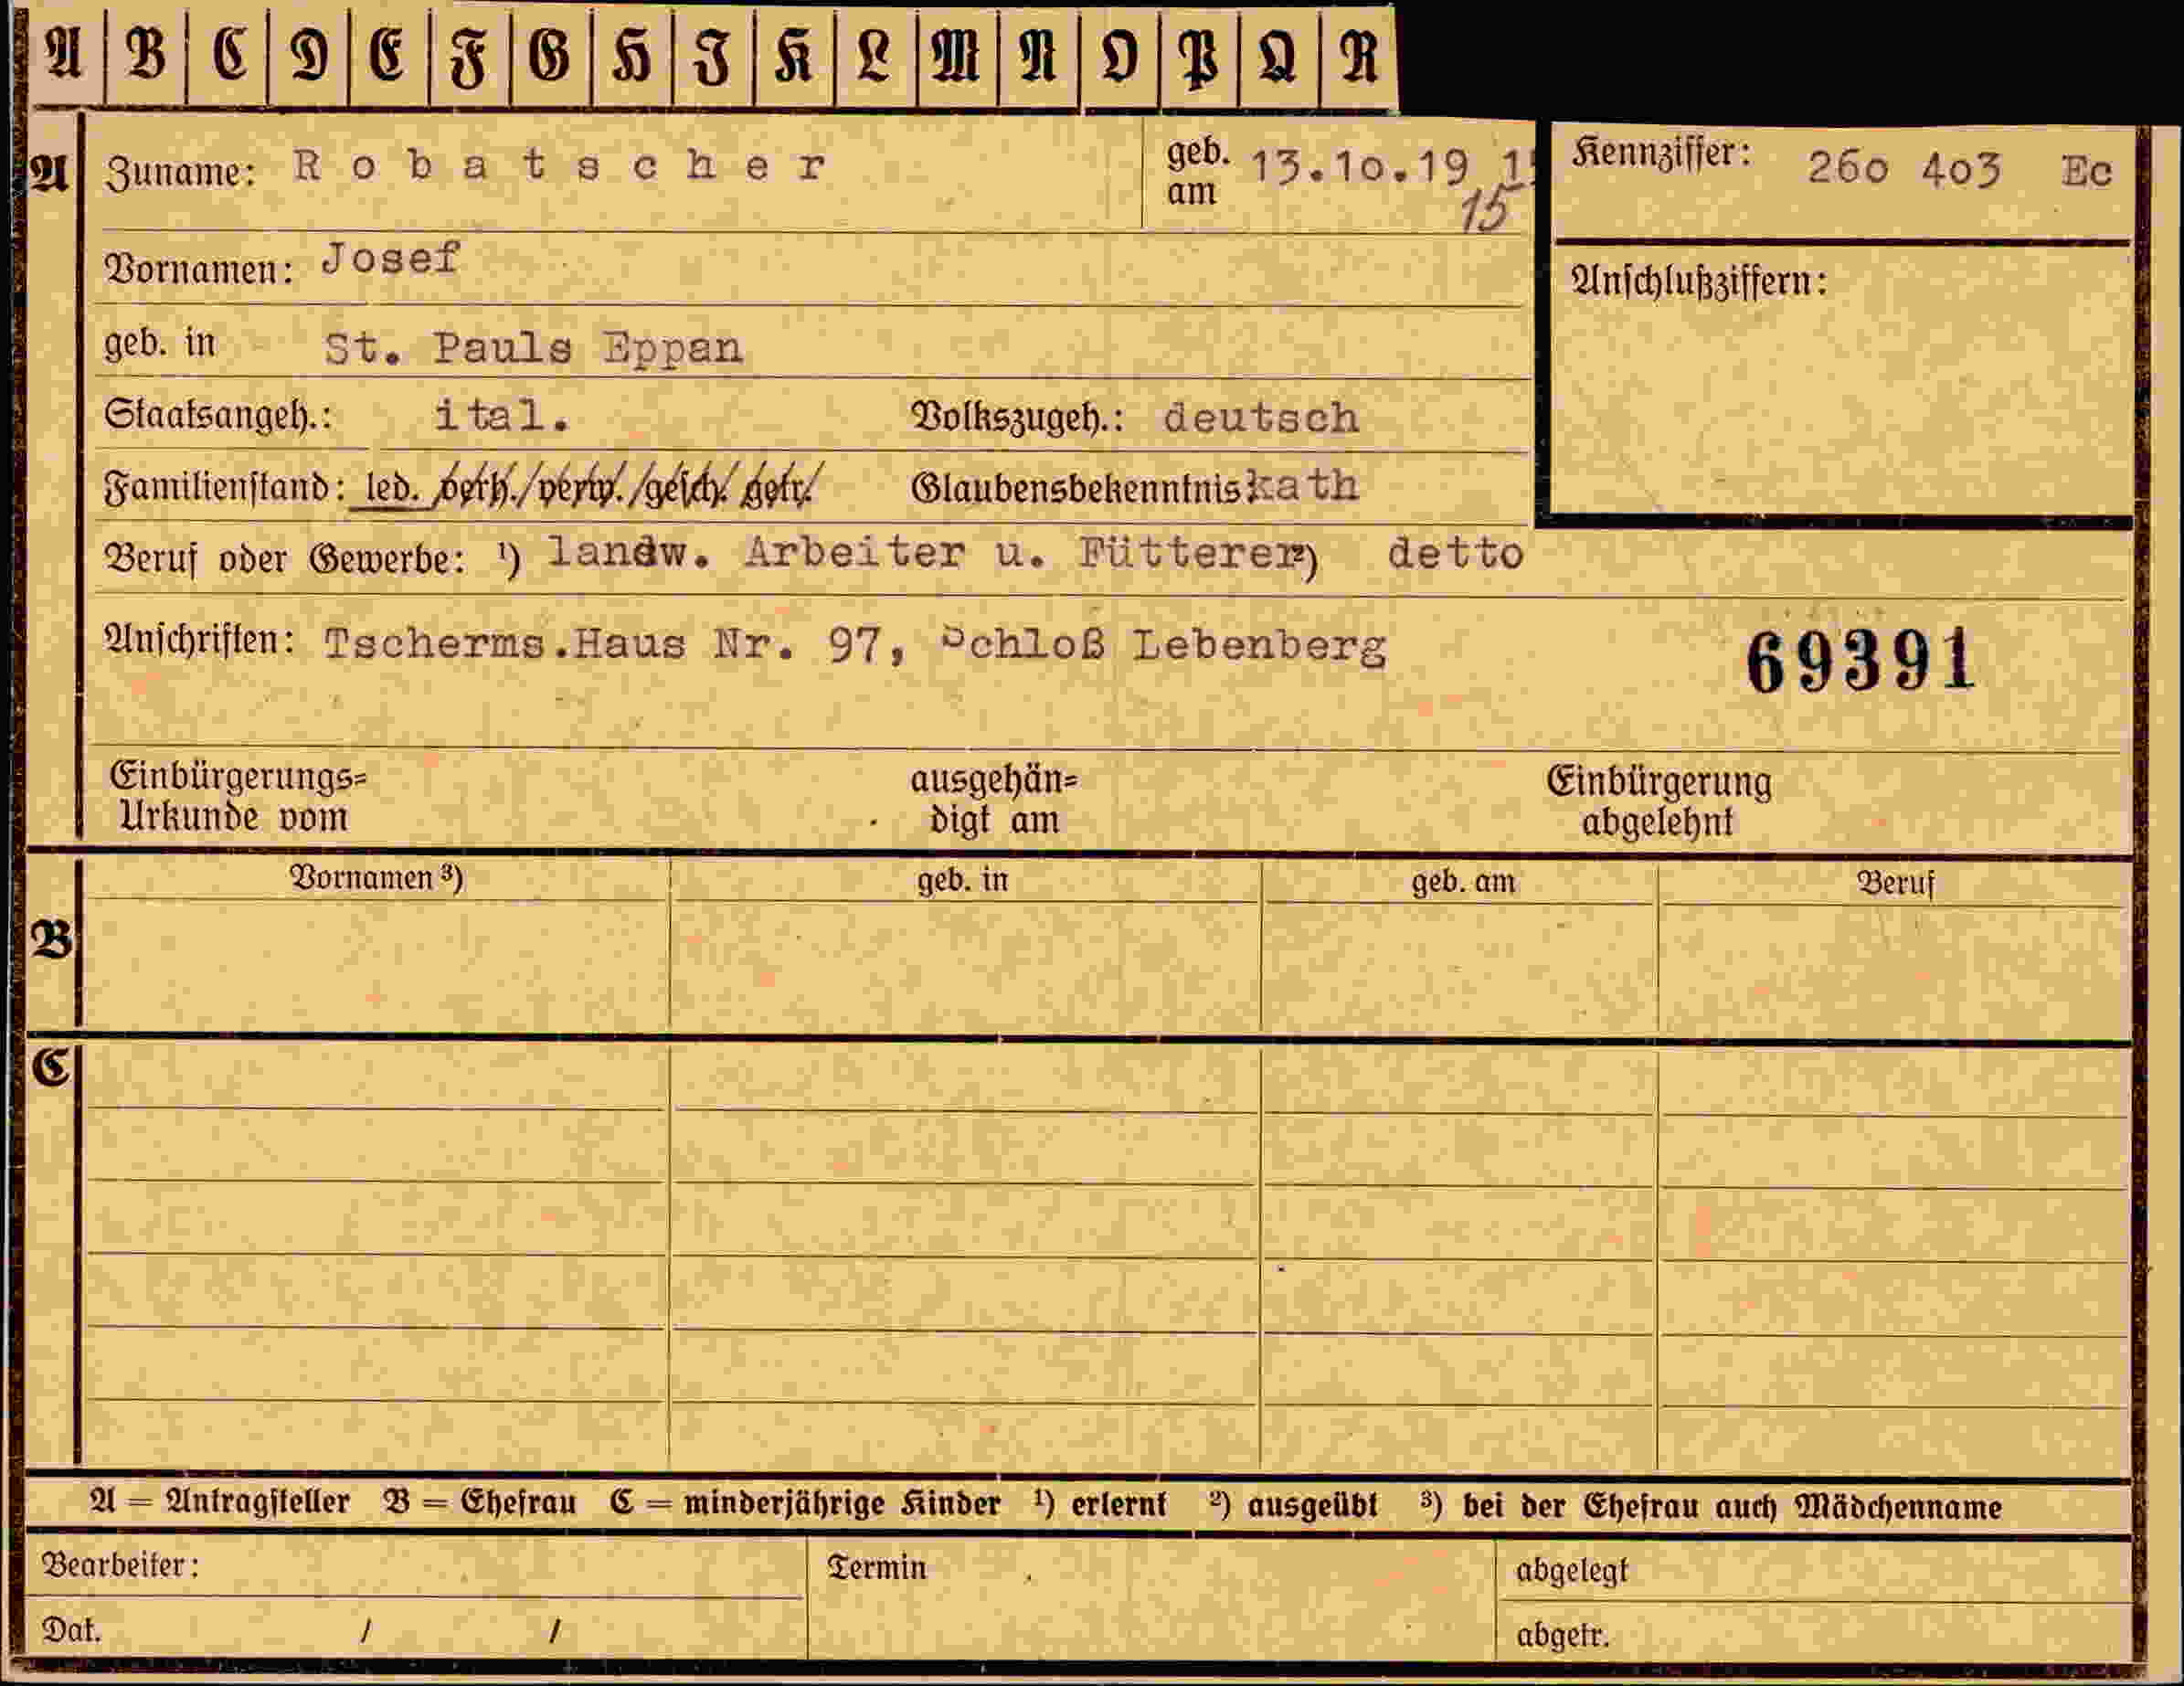 A B C D E F G H J K L M N O P Q R
A Zuname: Robatscher geb. am 13.10.19 15
15
Kennziffer: 260 403 Ec
Vornamen: Josef
Anschlußziffern:
geb. in St. Pauls Eppan
Staatsangeh.: ital. Volkszugeh.: deutsch
Familienstand: led. /verh./verw./gesch./getr./ Glaubensbekenntnis kath
Beruf oder Gewerbe: ¹) landw. Arbeiter u. Fütterer ²) detto
Anschriften: Tscherms.Haus Nr. 97, Schloß Lebenberg
69391
Einbürgerungs= ausgehän= Einbürgerung
Urkunde vom digt am abgelehnt
Vornamen ³) geb. in geb. am Beruf
B
C
A = Antragsteller B = Ehefrau C = minderjährige Kinder ¹) erlernt ²) ausgeübt ³) bei der Ehefrau auch Mädchenname
Bearbeiter: Termin abgelegt
Dat. / / abgetr.